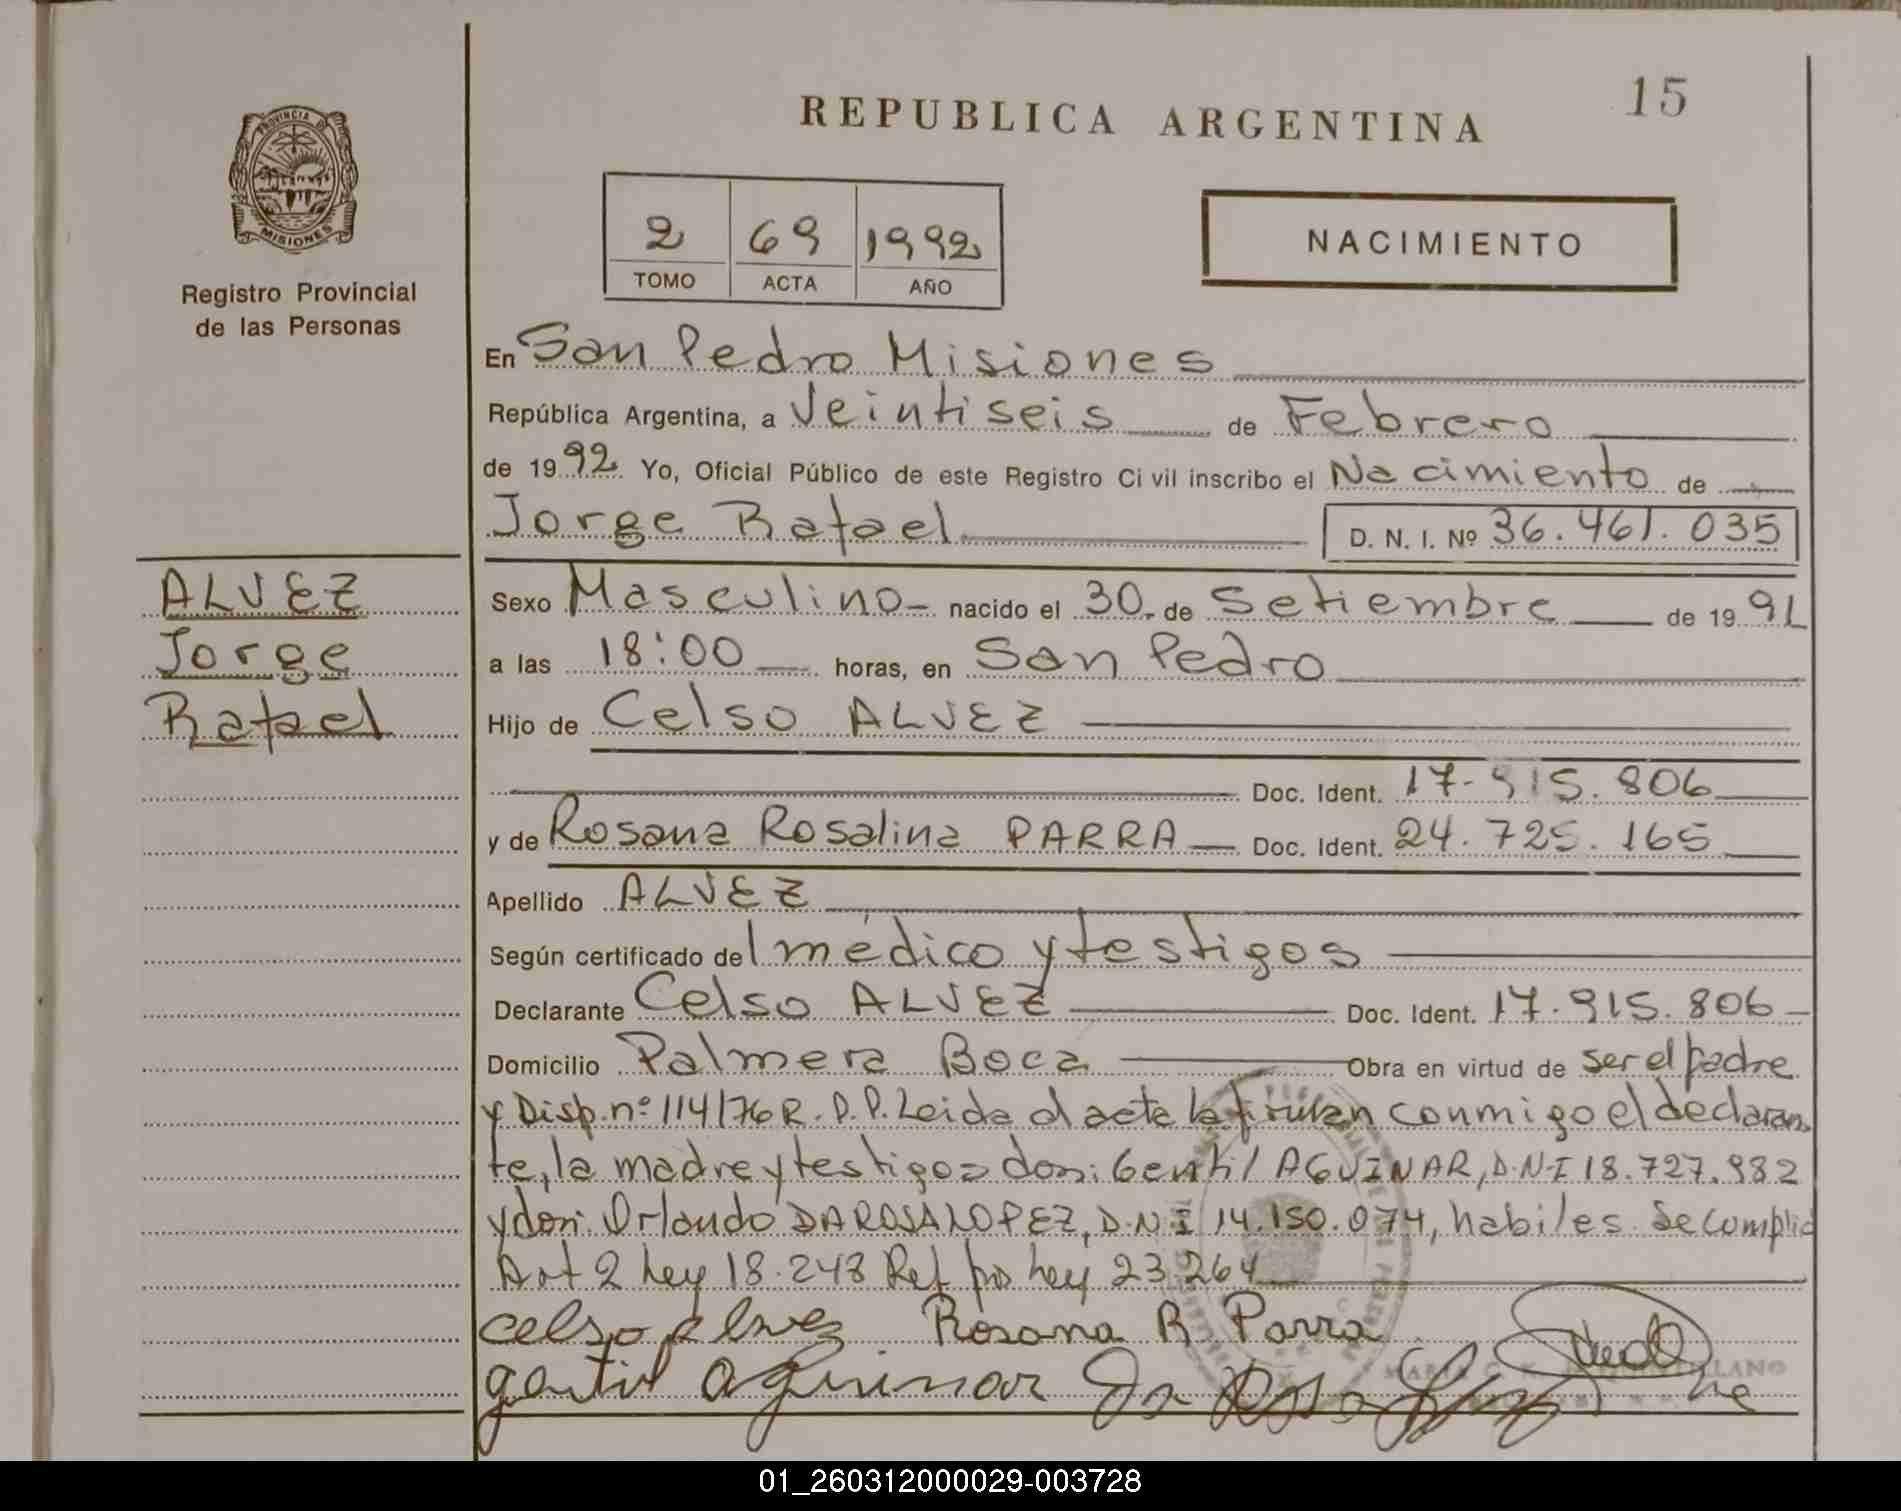 15
REPUBLICA ARGENTINA
PROVINCIA DE
MISIONES
Registro Provincial
de las Personas
2 69 1992
TOMO ACTA AÑO
NACIMIENTO
En San Pedro Misiones
República Argentina, a Veintiseis de Febrero
de 1992. Yo, Oficial Público de este Registro Civil inscribo el Nacimiento de
Jorge Rafael D. N. I. Nº 36.461.035
ALVEZ
Jorge
Rafael
Sexo Masculino- nacido el 30 de Setiembre de 1991
a las 18:00 horas, en San Pedro
Hijo de Celso ALVEZ
Doc. Ident. 17.915.806
y de Rosana Rosalina PARRA Doc. Ident. 24.725.165
Apellido ALVEZ
Según certificado del médico y testigos
Declarante Celso ALVEZ Doc. Ident. 17.915.806
Domicilio Palmera Boca Obra en virtud de ser el padre
y Disp. nº 114/76 R.P.P. Leida el acta la firman conmigo el declaran
te, la madre y testigos don: Gentil AGUINAR, D.N.I 18.727.982
y don: Orlando DA ROSA LOPEZ, D.N.I 14.150.074, habiles. Se cumplio
Art 2 Ley 18.248 Ref por Ley 23.264
Celso alvez Rosana R Parra
gentil aguinar Da Rosa
01_260312000029-003728